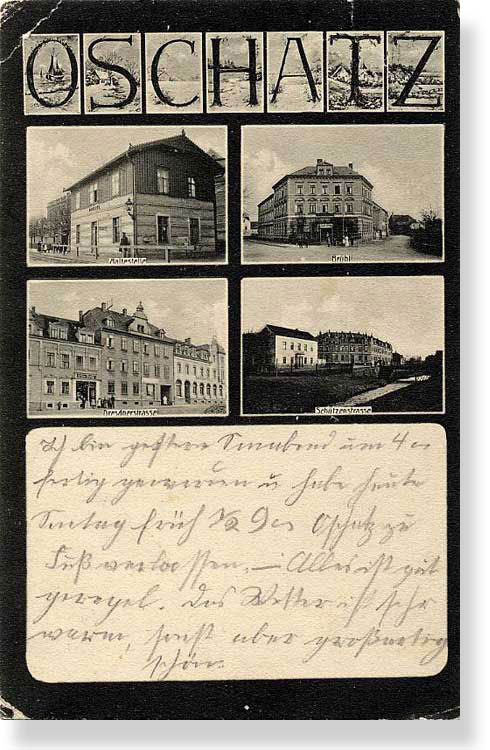 OSCHATZ
Haltestelle
Brühl
Dresdnerstrasse
Schützenstrasse
Ich bin gestern Sonnabend um 4
fertig geworden u habe heute
Sontag früh ½ 9 Oschatz zu
Fuß verlassen, – Alles ist gut
geregel. Das Wetter ist sehr
warm, sonst aber großartig
schön.